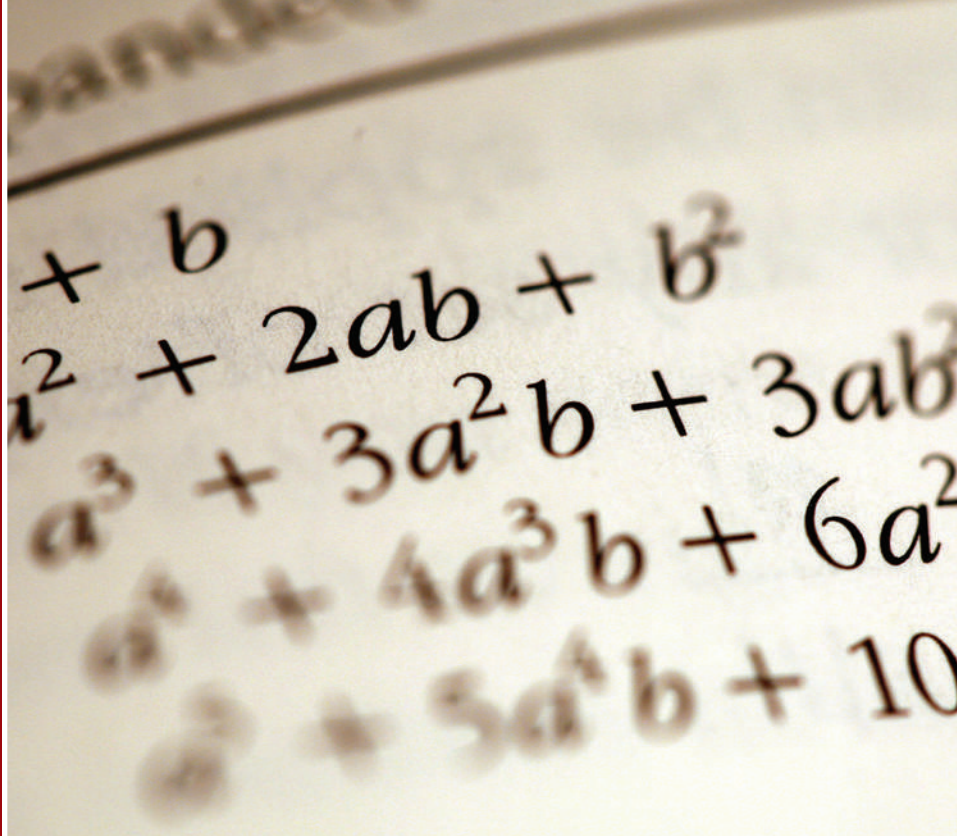 pande
+ b
a² + 2ab + b²
a³ + 3a²b + 3ab²
a⁴ + 4a³b + 6a²
+ 5a⁴b + 10